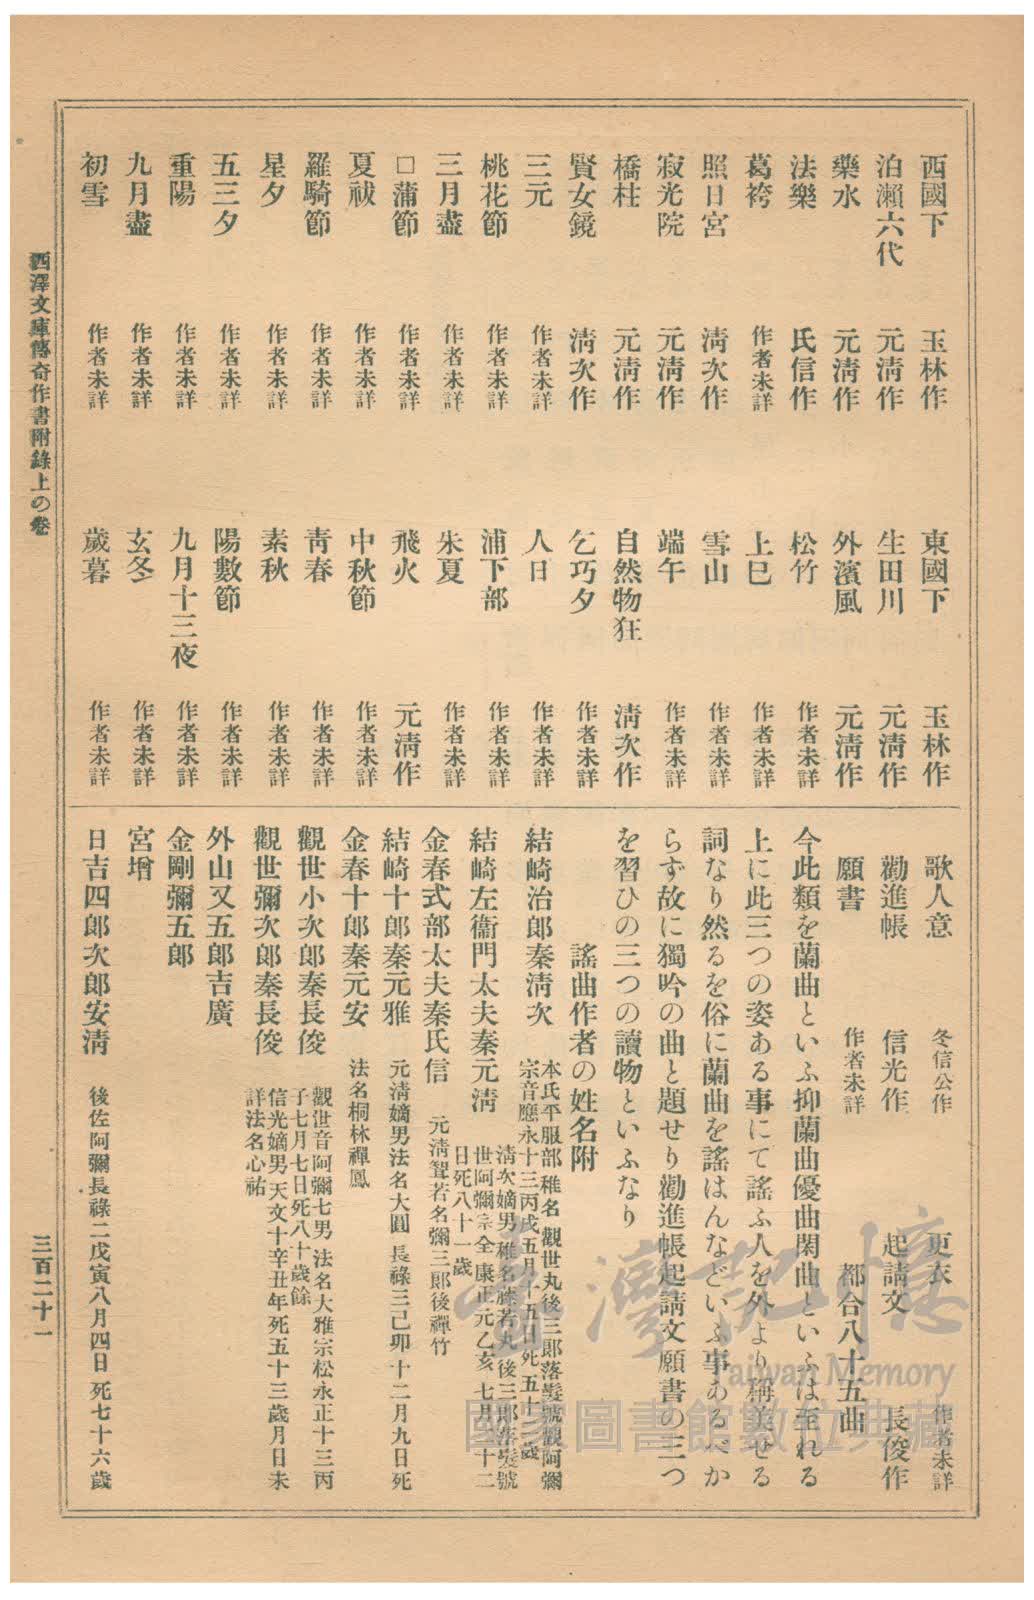 西國下　玉林作　東國下　玉林作
泊瀨六代　元淸作　生田川　元淸作
藥水　元淸作　外濱風　元淸作
法樂　氏信作　松竹　作者未詳
葛袴　作者未詳　上巳　作者未詳
照日宮　淸次作　雪山　作者未詳
寂光院　元淸作　端午　作者未詳
橋柱　元淸作　自然物狂　淸次作
賢女鏡　淸次作　乞巧夕　作者未詳
三元　作者未詳　人日　作者未詳
桃花節　作者未詳　浦下部　作者未詳
三月盡　作者未詳　朱夏　作者未詳
□蒲節　作者未詳　飛火　元淸作
夏祓　作者未詳　中秋節　作者未詳
羅騎節　作者未詳　靑春　作者未詳
星夕　作者未詳　素秋　作者未詳
五三夕　作者未詳　陽數節　作者未詳
重陽　作者未詳　九月十三夜　作者未詳
九月盡　作者未詳　玄冬　作者未詳
初雪　作者未詳　歲暮　作者未詳
歌人意　冬信公作　更衣　作者未詳
勸進帳　信光作　起請文　長俊作
願書　作者未詳　都合八十五曲
今此類を蘭曲といふ抑蘭曲優曲閑曲といふは至れる
上に此三つの姿ある事にて謠ふ人を外より稱美せる
詞なり然るを俗に蘭曲を謠はんなどいふ事あるべか
らず故に獨吟の曲と題せり勸進帳起請文願書の三つ
を習ひの三つの讀物といふなり
謠曲作者の姓名附
結崎治郞秦淸次　本氏平服部稚名觀世丸後三郞落髮號觀阿彌
宗音應永十三丙戌五月十五日死五十二歲
結崎左衞門太夫秦元淸　淸次嫡男稚名藤若丸後三郞落髮號
世阿彌宗全康正元乙亥七月二十二
日死八十一歲
金春式部太夫秦氏信　元淸聟若名彌三郞後禪竹
結崎十郞秦元雅　元淸嫡男法名大圓長祿三己卯十二月九日死
金春十郞秦元安　法名桐林禪鳳
觀世小次郞秦長俊　觀世音阿彌七男法名大雅宗松永正十三丙
子七月七日死八十歲餘
觀世彌次郞秦長俊　信光嫡男天文十辛丑年死五十三歲月日未
詳法名心祐
外山又五郞吉廣
金剛彌五郞
宮增
日吉四郞次郞安淸　後佐阿彌長祿二戊寅八月四日死七十六歲
西澤文庫傳奇作書附錄上の卷
三百二十一
臺灣記憶
Taiwan Memory
國家圖書館數位典藏